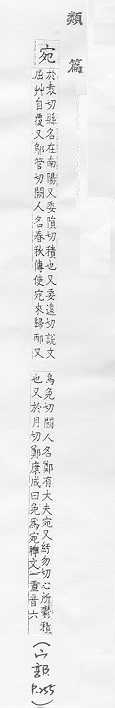 類篇
宛
於袁切縣名在南陽又委隕切積也又委遠切說文
屈艸自覆又鄔管切闕人名春秋傳使宛來歸祊又
烏勉切闕人名鄭有大夫宛又紆勿切心所鬱積
也又於月切鄭康成曰兔爲宛脾文一重音六
(宀部
P.255)